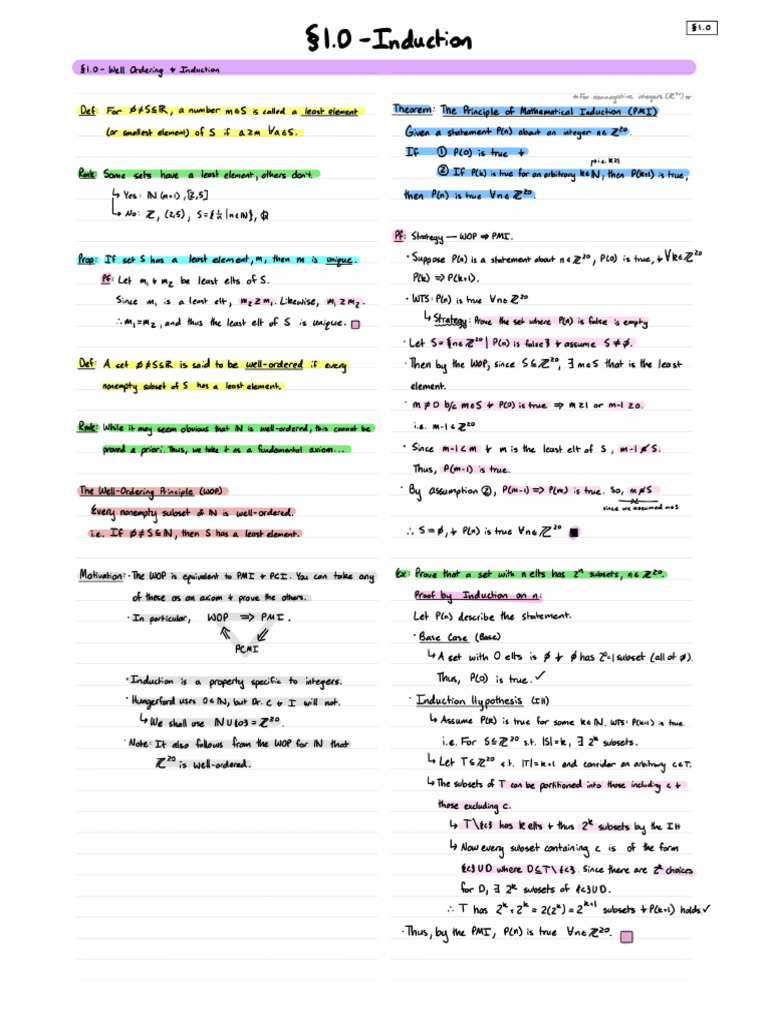 §1.0 - Induction
§1.0
§1.0 - Well Ordering + Induction
Def: For ∅≠S⊆ℝ, a number m∈S is called a least element
(or smallest element) of S if a≥m ∀a∈S.
Rmk: Some sets have a least element, others don't.
↳ Yes: ℕ (m=1), [2,5]
↳ No: ℤ, (2,5), S={1/n | n∈ℕ}, ℚ
Prop: If set S has a least element, m, then m is unique.
Pf: Let m₁ + m₂ be least elts of S.
Since m₁ is a least elt, m₂≥m₁. Likewise, m₁≥m₂.
∴ m₁=m₂, and thus the least elt of S is unique.
Def: A set ∅≠S⊆ℝ is said to be well-ordered if every
nonempty subset of S has a least element.
Rmk: While it may seem obvious that ℕ is well-ordered, this cannot be
proved a priori. Thus, we take it as a fundamental axiom...
The Well-Ordering Principle (WOP)
Every nonempty subset of ℕ is well-ordered.
i.e. If ∅≠S⊆ℕ, then S has a least element.
Motivation: · The WOP is equivalent to PMI + PCI. You can take any
of these as an axiom + prove the others.
· In particular, WOP ⟹ PMI.
PCMI
· Induction is a property specific to integers.
· Hungerford uses 0∈ℕ, but Dr. C + I will not.
↳ We shall use ℕ∪{0}=ℤ^≥0.
· Note: It also follows from the WOP for ℕ that
ℤ^≥0 is well-ordered.
* For nonnegative integers (ℤ^≥0) *
Theorem: The Principle of Mathematical Induction (PMI)
Given a statement P(n) about an integer n∈ℤ^≥0.
If ① P(0) is true +
② If P(k) is true for an arbitrary k∈ℕ, then P(k+1) is true,
then P(n) is true ∀n∈ℤ^≥0.
Pf: Strategy — WOP ⟹ PMI.
· Suppose P(n) is a statement about n∈ℤ^≥0, P(0) is true, + ∀k∈ℤ^≥0
P(k) ⟹ P(k+1).
· WTS: P(n) is true ∀n∈ℤ^≥0
↳ Strategy: Prove the set where P(n) is false is empty
· Let S={n∈ℤ^≥0 | P(n) is false} + assume S≠∅.
· Then by the WOP, since S⊆ℤ^≥0, ∃ m∈S that is the least
element.
· m≠0 b/c m∈S + P(0) is true ⟹ m≥1 or m-1≥0.
i.e. m-1∈ℤ^≥0
· Since m-1<m + m is the least elt of S, m-1∉S.
Thus, P(m-1) is true.
· By assumption ②, P(m-1) ⟹ P(m) is true. So, m∉S
since we assumed m∈S
∴ S=∅, + P(n) is true ∀n∈ℤ^≥0
Ex: Prove that a set with n elts has 2ⁿ subsets, n∈ℤ^≥0.
Proof by Induction on n:
Let P(n) describe the statement.
· Base Case (Base)
↳ A set with 0 elts is ∅ + ∅ has 2⁰=1 subset (all of ∅).
Thus, P(0) is true. ✓
· Induction Hypothesis (IH)
↳ Assume P(k) is true for some k∈ℕ. WTS: P(k+1) is true.
i.e. For S⊆ℤ^≥0 s.t. |S|=k, ∃ 2ᵏ subsets.
↳ Let T⊆ℤ^≥0 s.t. |T|=k+1 and consider an arbitrary c∈T.
↳ The subsets of T can be partitioned into those including c +
those excluding c.
↳ T\{c} has k elts + thus 2ᵏ subsets by the IH
↳ Now every subset containing c is of the form
{c}∪D where D⊆T\{c}. Since there are 2ᵏ choices
for D, ∃ 2ᵏ subsets of {c}∪D.
∴ T has 2ᵏ+2ᵏ = 2(2ᵏ) = 2ᵏ⁺¹ subsets + P(k+1) holds ✓
· Thus, by the PMI, P(n) is true ∀n∈ℤ^≥0.